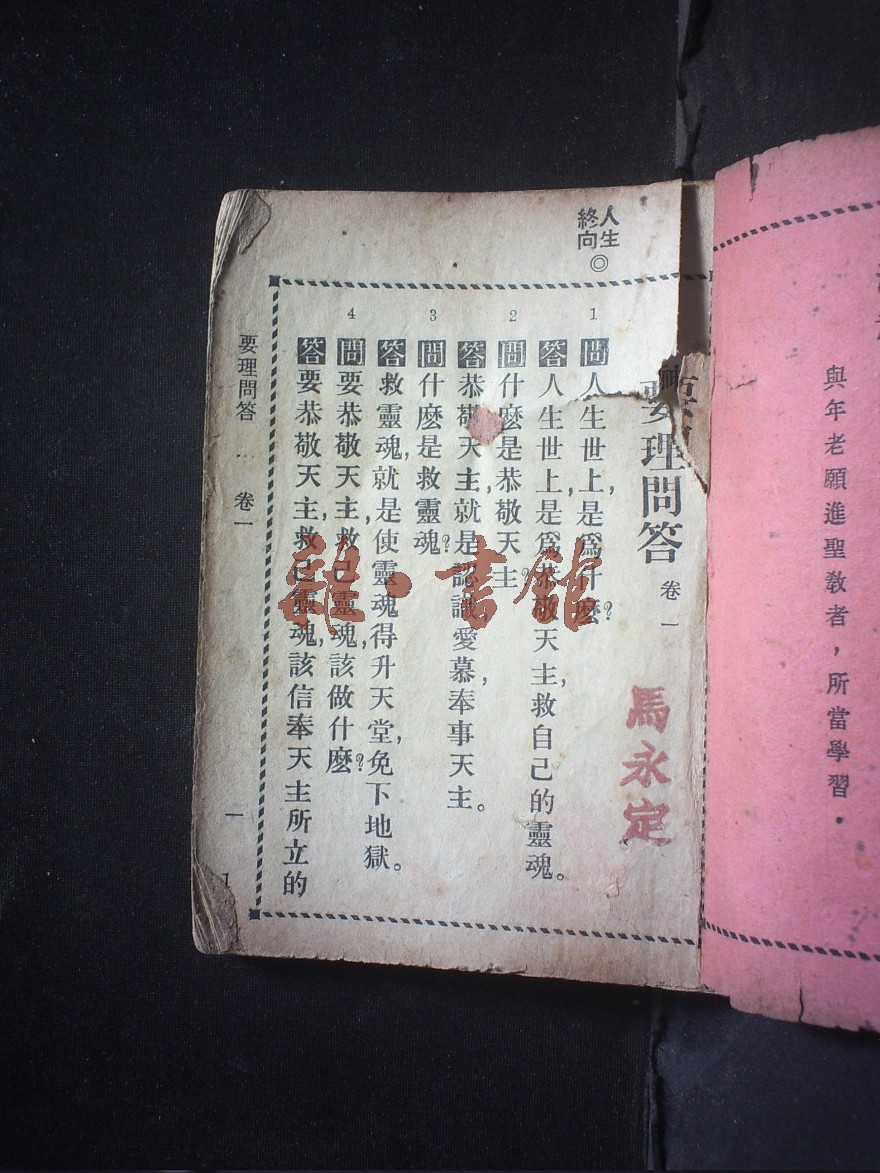 與年老願進聖教者，所當學習．
人生
終向
◎
要理問答 卷一
馬永定
1 問 人生世上，是爲什麽？
答 人生世上，是爲恭敬天主，救自己的靈魂。
2 問 什麽是恭敬天主？
答 恭敬天主，就是認識，愛慕，奉事天主。
3 問 什麽是救靈魂？
答 救靈魂，就是使靈魂得升天堂，免下地獄。
4 問 要恭敬天主，救己靈魂，該做什麽？
答 要恭敬天主，救己靈魂，該信奉天主所立的
要理問答 … 卷一 一
1
書館